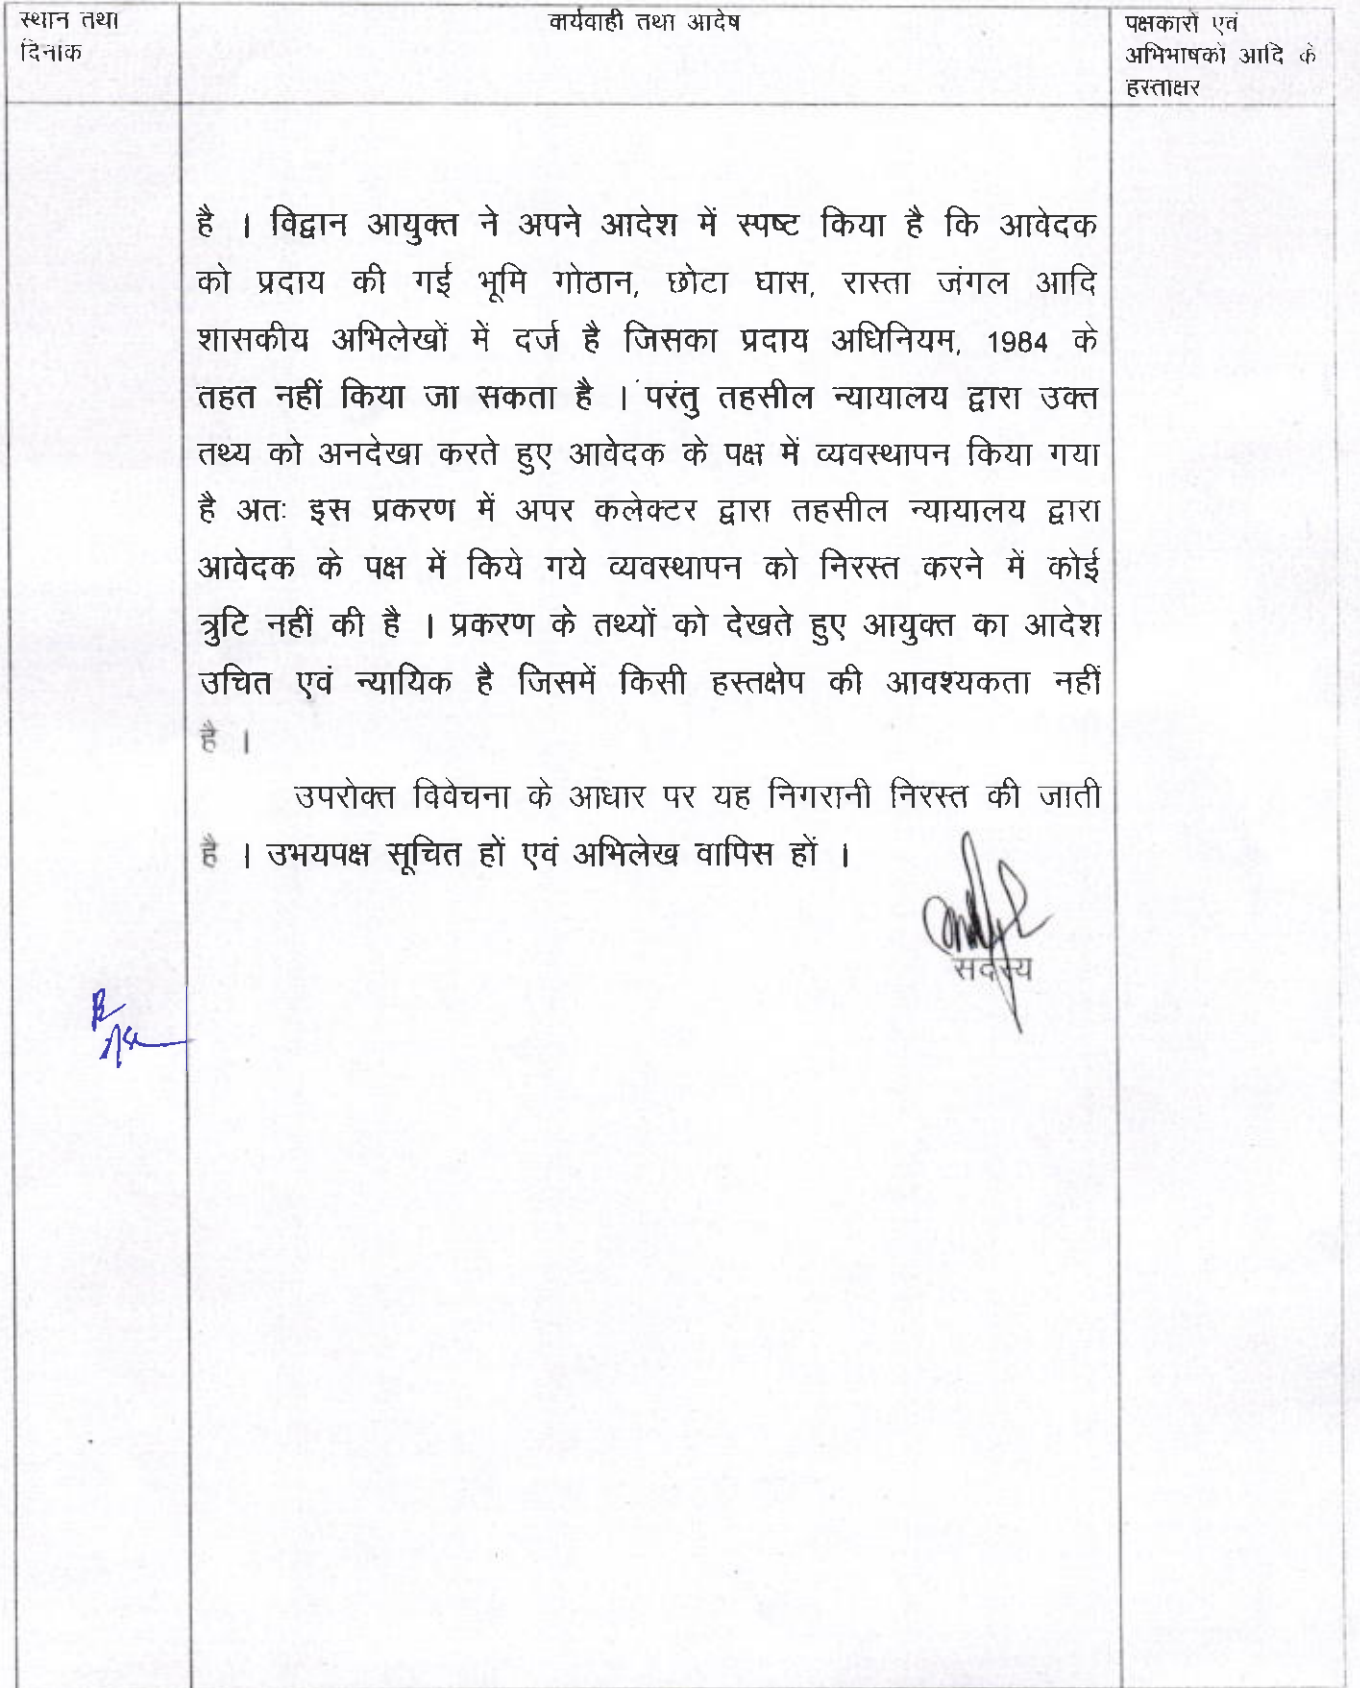 स्थान तथा
दिनांक
कार्यवाही तथा आदेष
पक्षकारों एवं
अभिभाषकों आदि के
हस्ताक्षर
है । विद्वान आयुक्त ने अपने आदेश में स्पष्ट किया है कि आवेदक
को प्रदाय की गई भूमि गोठान, छोटा घास, रास्ता जंगल आदि
शासकीय अभिलेखों में दर्ज है जिसका प्रदाय अधिनियम, 1984 के
तहत नहीं किया जा सकता है । परंतु तहसील न्यायालय द्वारा उक्त
तथ्य को अनदेखा करते हुए आवेदक के पक्ष में व्यवस्थापन किया गया
है अतः इस प्रकरण में अपर कलेक्टर द्वारा तहसील न्यायालय द्वारा
आवेदक के पक्ष में किये गये व्यवस्थापन को निरस्त करने में कोई
त्रुटि नहीं की है । प्रकरण के तथ्यों को देखते हुए आयुक्त का आदेश
उचित एवं न्यायिक है जिसमें किसी हस्तक्षेप की आवश्यकता नहीं
है ।
उपरोक्त विवेचना के आधार पर यह निगरानी निरस्त की जाती
है । उभयपक्ष सूचित हों एवं अभिलेख वापिस हों ।
सदस्य